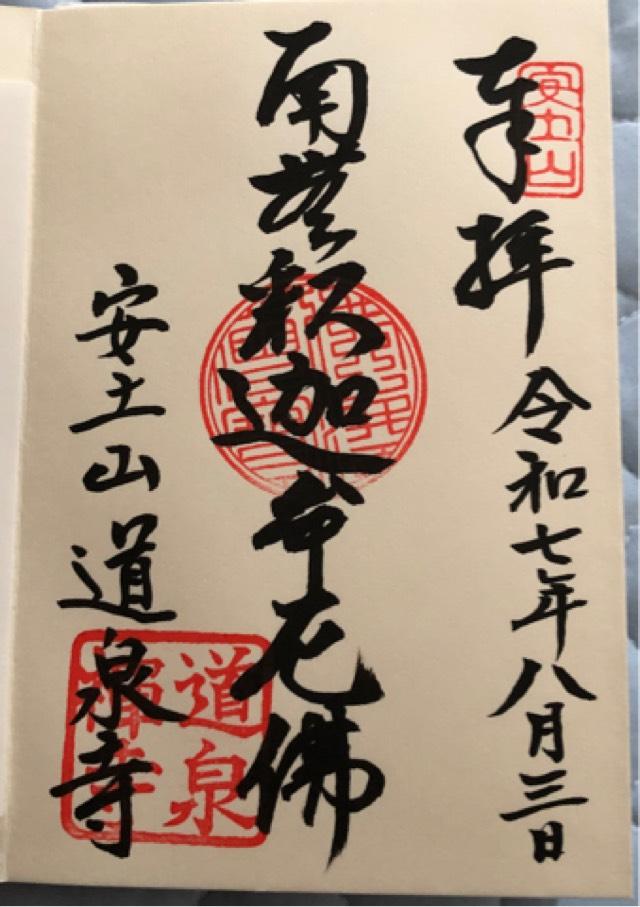 奉拝
令和七年八月三日
南無釈迦牟尼佛
安土山道泉寺
安土山
道泉禅寺